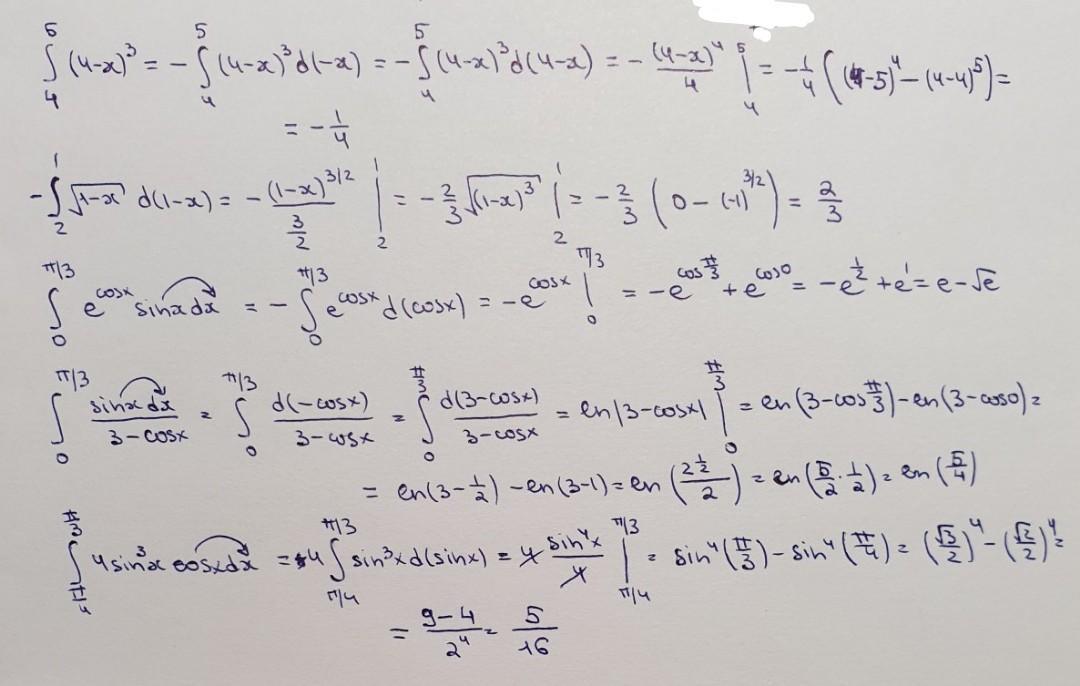 ∫₄⁵ (4-x)³ = - ∫₄⁵ (4-x)³ d(-x) = - ∫₄⁵ (4-x)³ d(4-x) = - (4-x)⁴/4 |₄⁵ = -1/4 ((4-5)⁴ - (4-4)⁵) =
= - 1/4
- ∫₂¹ √(1-x) d(1-x) = - (1-x)^(3/2) / (3/2) |₂¹ = - 2/3 √((1-x)³) |₂¹ = - 2/3 (0 - (-1)^(3/2)) = 2/3
∫₀^(π/3) e^(cosx) sinx dx = - ∫₀^(π/3) e^(cosx) d(cosx) = -e^(cosx) |₀^(π/3) = -e^(cos π/3) + e^(cos0) = -e^(1/2) + e¹ = e-√e
∫₀^(π/3) sinx dx / (3-cosx) = ∫₀^(π/3) d(-cosx) / (3-cosx) = ∫₀^(π/3) d(3-cosx) / (3-cosx) = ln|3-cosx| |₀^(π/3) = ln(3-cos π/3) - ln(3-cos0) =
= ln(3-1/2) - ln(3-1) = ln((2 1/2)/2) = ln(5/2 · 1/2) = ln(5/4)
∫_(π/4)^(π/3) 4sin³x cosx dx = 4 ∫_(π/4)^(π/3) sin³x d(sinx) = 4 sin⁴x/4 |_(π/4)^(π/3) = sin⁴(π/3) - sin⁴(π/4) = (√3/2)⁴ - (√2/2)⁴ =
= (9-4)/2⁴ = 5/16